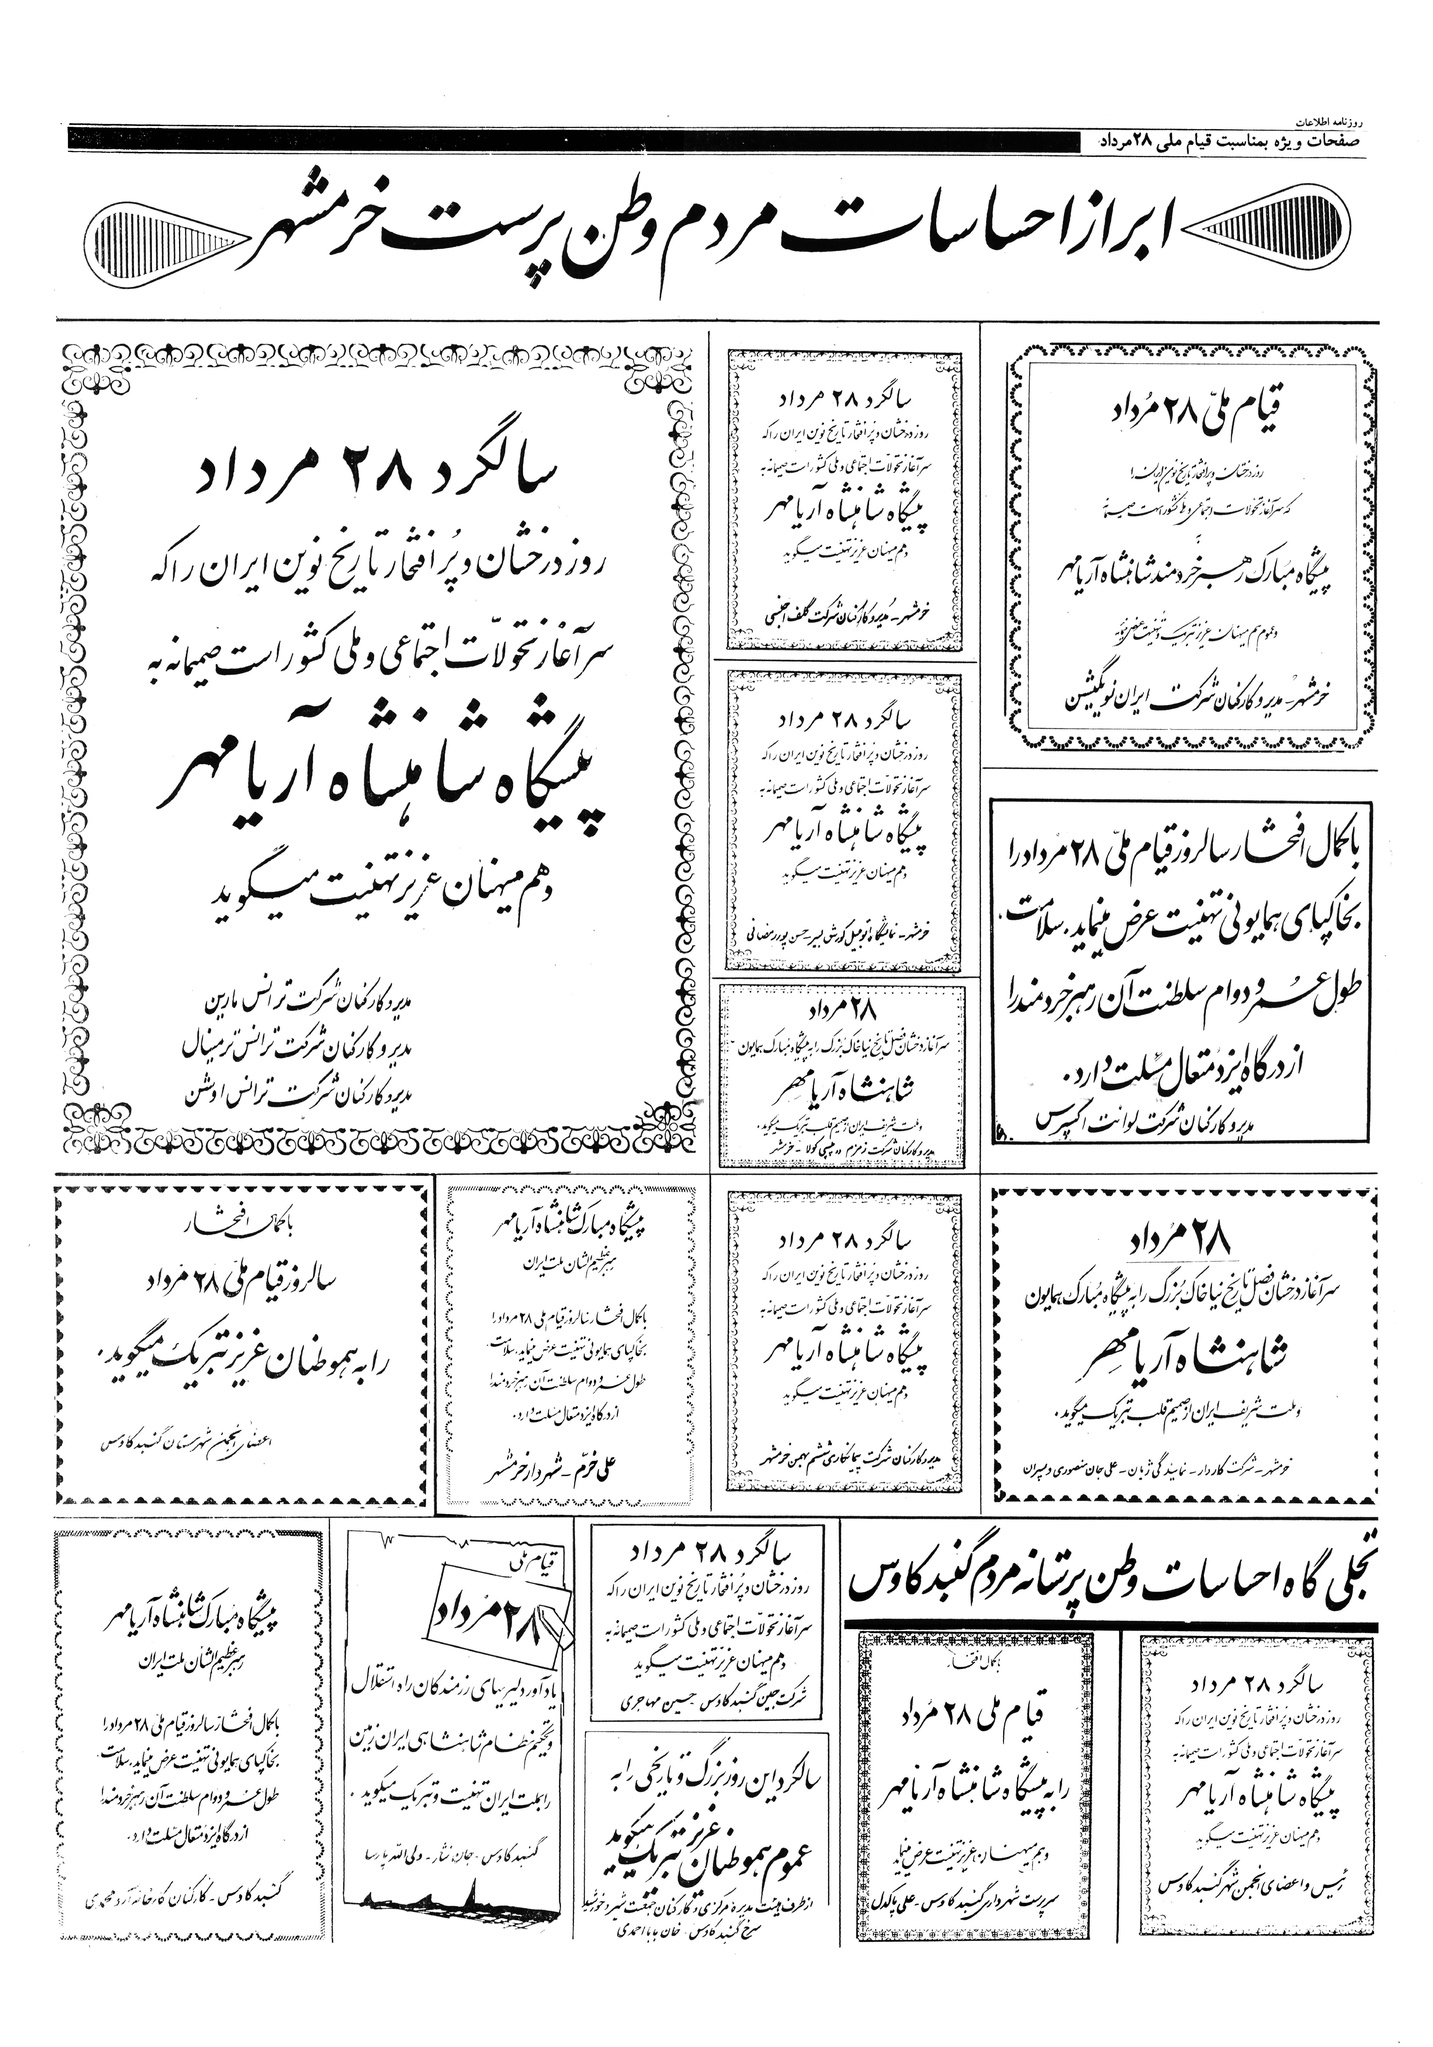 روزنامه اطلاعات
صفحات ویژه بمناسبت قیام ملی ۲۸ مرداد
ابراز احساسات مردم وطن پرست خرمشهر
قیام ملّی ۲۸ مُرداد
روز درخشان و پر افتخار تاریخ نوین ایران را
که سرآغاز تحولات اجتماعی و ملی کشور است صمیمانه
به
پیشگاه مبارک رهبر خردمند شاهنشاه آریامهر
و عموم هم میهنان عزیز تبریک و تهنیت عرض مینماید
خرمشهر - مدیر و کارکنان شرکت ایران نویگیشن
با کمال افتخار سالروز قیام ملّی ۲۸ مرداد را
بخاکپای همایونی تهنیت عرض مینماید. سلامت.
طول عمر و دوام سلطنت آن رهبر خردمند را
از درگاه ایزد متعال مسئلت دارد.
مدیر و کارکنان شرکت لوانت اکسپرس
سالگرد ۲۸ مرداد
روز درخشان و پر افتخار تاریخ نوین ایران را که
سرآغاز تحولات اجتماعی و ملی کشور است صمیمانه به
پیشگاه شاهنشاه آریامهر
و هم میهنان عزیز تهنیت میگوید
خرمشهر - مدیر و کارکنان شرکت گلف اجنسی
سالگرد ۲۸ مرداد
روز درخشان و پر افتخار تاریخ نوین ایران را که
سرآغاز تحولات اجتماعی و ملی کشور است صمیمانه به
پیشگاه شاهنشاه آریامهر
و هم میهنان عزیز تهنیت میگوید
خرمشهر - نمایشگاه اتومبیل کورش کبیر - حسن پور رمضانی
۲۸ مرداد
سرآغاز درخشان فصل تاریخ نیاخاک بزرگ را به پیشگاه مبارک همایون
شاهنشاه آریامهر
و ملت شریف ایران از صمیم قلب تبریک میگوید.
مدیر و کارکنان شرکت زمزم و پپسی کولا - خرمشهر
سالگرد ۲۸ مرداد
روز درخشان و پُر افتخار تاریخ نوین ایران را که
سرآغاز تحولاّت اجتماعی و ملی کشور است صمیمانه به
پیشگاه شاهنشاه آریامهر
و هم میهنان عزیز تهنیت میگوید
مدیر و کارکنان شرکت ترانس مارین
مدیر و کارکنان شرکت ترانس ترمینال
مدیر و کارکنان شرکت ترانس اوشن
۲۸ مُرداد
سرآغاز درخشان فصل تاریخ نیاخاک بُزرگ را به پیشگاه مُبارک همایون
شاهنشاه آریامهر
و ملت شریف ایران از صمیم قلب تبریک میگوید.
خرمشهر - شرکت کاردار - نمایندگی ژیان - علی جان منصوری و پسران
سالگرد ۲۸ مرداد
روز درخشان و پر افتخار تاریخ نوین ایران را که
سرآغاز تحولات اجتماعی و ملی کشور است صمیمانه به
پیشگاه شاهنشاه آریامهر
و هم میهنان عزیز تهنیت میگوید
مدیر و کارکنان شرکت پیمانکاری ششم بهمن خرمشهر
پیشگاه مبارک شاهنشاه آریامهر
رهبر عظیم الشان ملت ایران
با کمال افتخار سالروز قیام ملی ۲۸ مرداد را
بخاکپای همایونی تهنیت عرض مینماید. سلامت.
طول عمر و دوام سلطنت آن رهبر خردمند را
از درگاه ایزد متعال مسئلت دارد.
علی خرّم - شهردار خرمشهر
با کمال افتخار
سالروز قیام ملّی ۲۸ مُرداد
را به هموطنان عزیز تبریک میگوید.
اعضای انجمن شهرستان گنبد کاوس
تجلی گاه احساسات وطن پرستانه مردم گنبد کاوس
سالگرد ۲۸ مرداد
روز درخشان و پر افتخار تاریخ نوین ایران را که
سرآغاز تحولات اجتماعی و ملی کشور است صمیمانه به
پیشگاه شاهنشاه آریامهر
و هم میهنان عزیز تهنیت میگوید
رئیس و اعضای انجمن شهر گنبد کاوس
با کمال افتخار
قیام ملی ۲۸ مُرداد
را به پیشگاه شاهنشاه آریامهر
و هم میهنان عزیز تهنیت عرض مینماید
سرپرست شهرداری گنبد کاوس - علی پاکدل
سالگرد ۲۸ مرداد
روز درخشان و پُر افتخار تاریخ نوین ایران را که
سرآغاز تحولاّت اجتماعی و ملی کشور است صمیمانه به
و هم میهنان عزیز تهنیت میگوید
شرکت جین گنبد کاوس حسین مهاجری
سالگرد این روز بزرگ و تاریخی را به
عموم هموطنان عزیز تبریک میگوید
از طرف هیئت مدیره مرکزی و کارکنان جمعیت شیر و خورشید
سرخ گنبد کاوس - خان بابا احمدی
قیام ملی
۲۸ مرداد
یادآور دلیریهای رزمندگان راه استقلال
و تحکیم نظام شاهنشاهی ایران زمین
را بملت ایران تهنیت و تبریک میگوید.
گنبد کاوس - جان نثار - ولی الله پارسا
پیشگاه مبارک شاهنشاه آریامهر
رهبر عظیم الشان ملت ایران
با کمال افتخار سالروز قیام ملی ۲۸ مرداد را
بخاکپای همایونی تهنیت عرض مینماید. سلامت.
طول عمر و دوام سلطنت آن رهبر خردمند را
از درگاه ایزد متعال مسئلت دارد.
گنبد کاوس - کارکنان کارخانه آرد محمدی